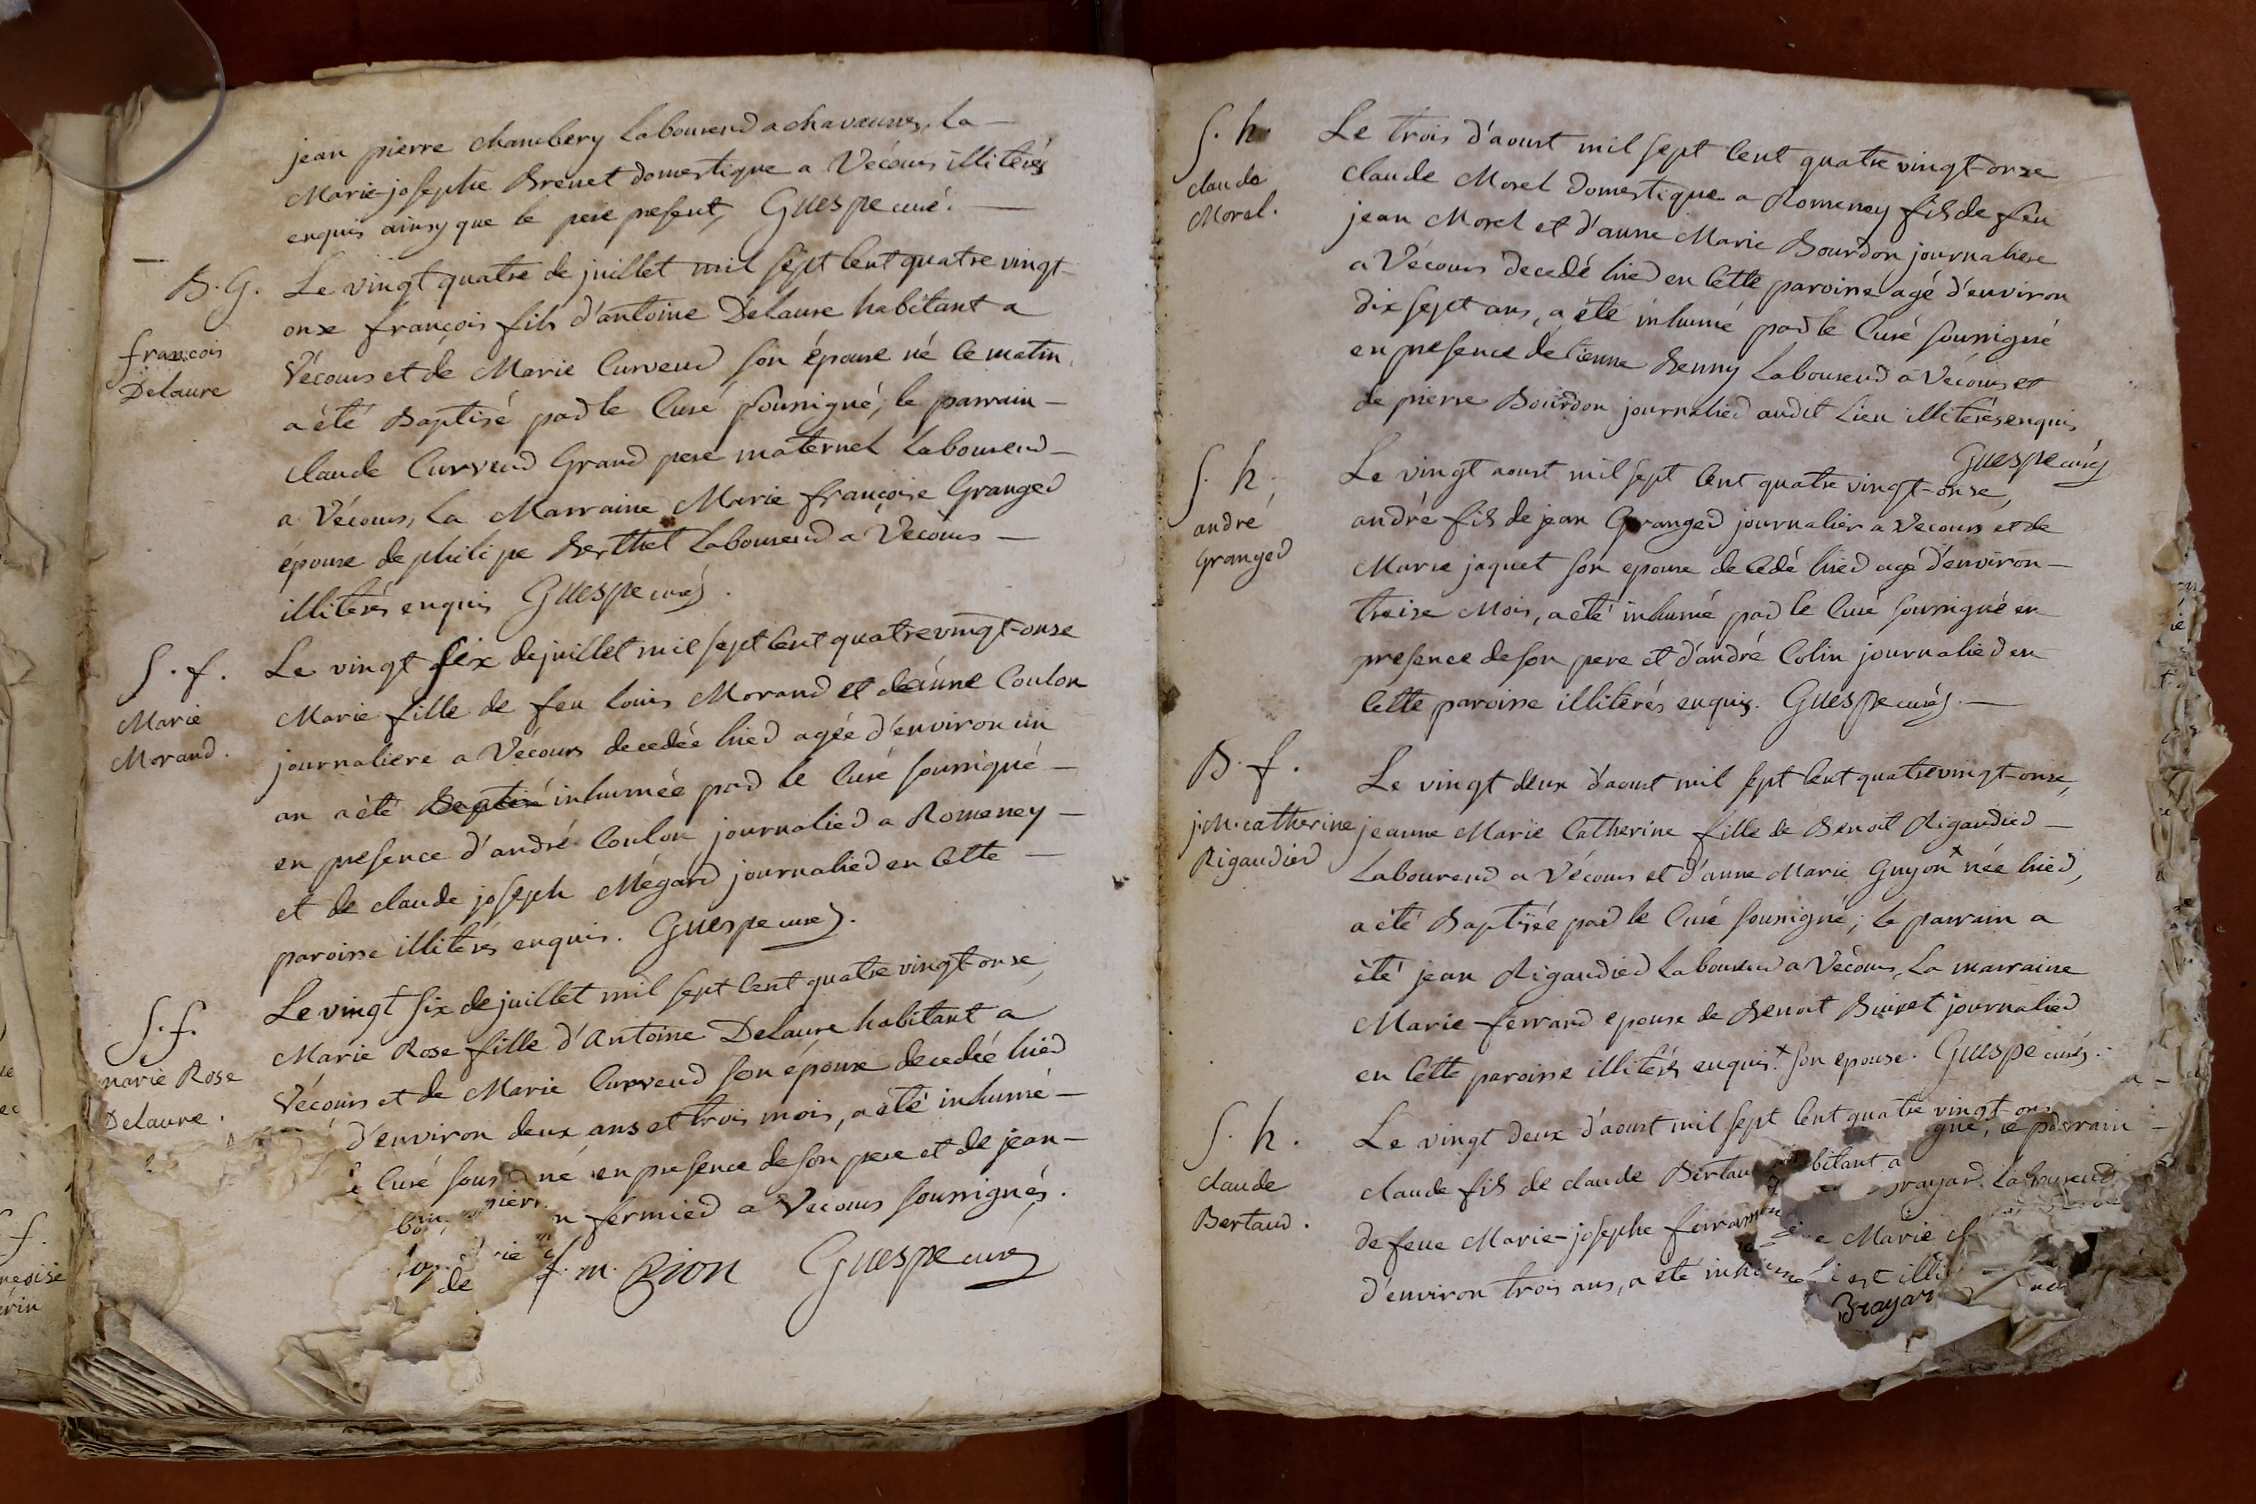 jean pierre chambery laboureur a chavannes, la
Marie-josephe Brenet domestique a Vécours illiterés
enquis ainsy que le pere present, Guespe curé.
B. G.
françois
Delaure
Le vingt quatre de juillet mil sept cent quatre vingt
onze françois fils d'antoine Delaure habitant a
Vécours et de Marie Curveur son épouse né ce matin
a été Baptisé par le Curé soussigné, le parrain
claude Curveur Grand pere maternel laboureur
a Vécours, la Marraine Marie françoise Granger
épouse de philipe Berthet laboureur a Vécours
illiterés enquis Guespe curé.
S. f.
Marie
Morand.
Le vingt six de juillet mil sept cent quatre vingt-onze
Marie fille de feu louis Morand et d'anne Coulon
journaliere a Vécours decedée hier agée d'environ un
an a été inhumée par le Curé soussigné
en presence d'andré Coulon journalier a Romeney
et de claude joseph Mégard journalier en cette
paroisse illiterés enquis. Guespe curé.
S. f.
marie Rose
Delaure.
Le vingt six de juillet mil sept cent quatre vingt onze,
Marie Rose fille d'Antoine Delaure habitant a
Vécours et de Marie Curveur son épouse decedée hier
d'environ deux ans et trois mois, a été inhumé
Curé sous né en presence de son pere et de jean
fermier a Vecours soussignés.
de f. m. Pion Guespe curé
S. h.
claude
Morel.
Le trois d'aoust mil sept cent quatre vingt-onze
claude Morel domestique a Romeney fils de feu
jean Morel et d'anne Marie Bourdon journaliere
a Vécours decedé hier en cette paroisse agé d'environ
dix sept ans, a été inhumé par le Curé soussigné
en presence d'etienne Benny laboureur a Vecours et
de pierre Bourdon journalier audit Lieu illiterés enquis
Guespe curé
S. h.
andré
Granger
Le vingt aoust mil sept cent quatre vingt-onze,
andré fils de jean Granger journalier a Vecours et de
Marie jaquet son epouse decedé hier agé d'environ
treize Mois, a été inhumé par le Curé soussigné en
presence de son pere et d'andré Colin journalier en
cette paroisse illiterés enquis. Guespe curé.
B. f.
j. M. catherine
Rigaudier
Le vingt deux d'aoust mil sept cent quatre vingt-onze,
jeanne Marie Catherine fille de Benoit Rigaudier
Laboureur a Vécours et d'anne Marie Guyon x née hier,
a été Baptisée par le Curé soussigné; le parrain a
été jean Rigaudier laboureur a Vécours, la marraine
Marie ferrand epouse de Benoit Buiret journalier
en cette paroisse illiterés enquis. x son epouse. Guespe curé.
S. h.
claude
Bertaud.
Le vingt deux d'aoust mil sept cent quatre vingt
gné, le parrain
claude fils de claude Bertau bitant a
laboureur
de feue Marie-josephe ferran
Marie
d'environ trois ans, a été inhumé est illi
Brayar